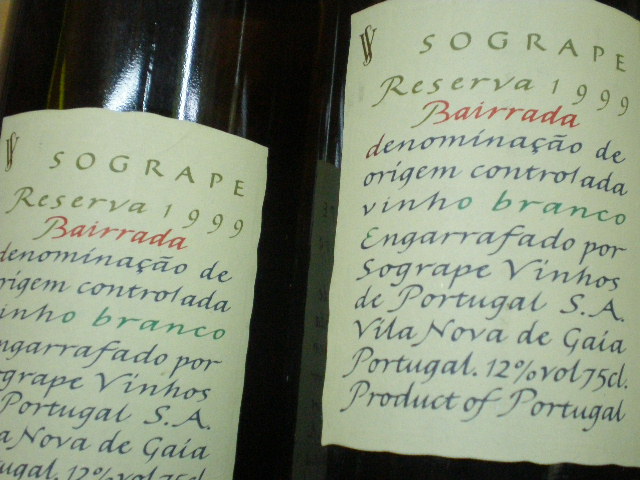 SOGRAPE
Reserva 1999
Bairrada
denominação de
origem controlada
vinho branco
Engarrafado por
Sogrape Vinhos
de Portugal S.A.
Vila Nova de Gaia
Portugal. 12%vol 75cl.
Product of Portugal
SOGRAPE
Reserva 1999
Bairrada
denominação de
origem controlada
vinho branco
ngarrafado por
grape Vinhos
Portugal S.A.
a Nova de Gaia
ugal. 12%vol 75cl